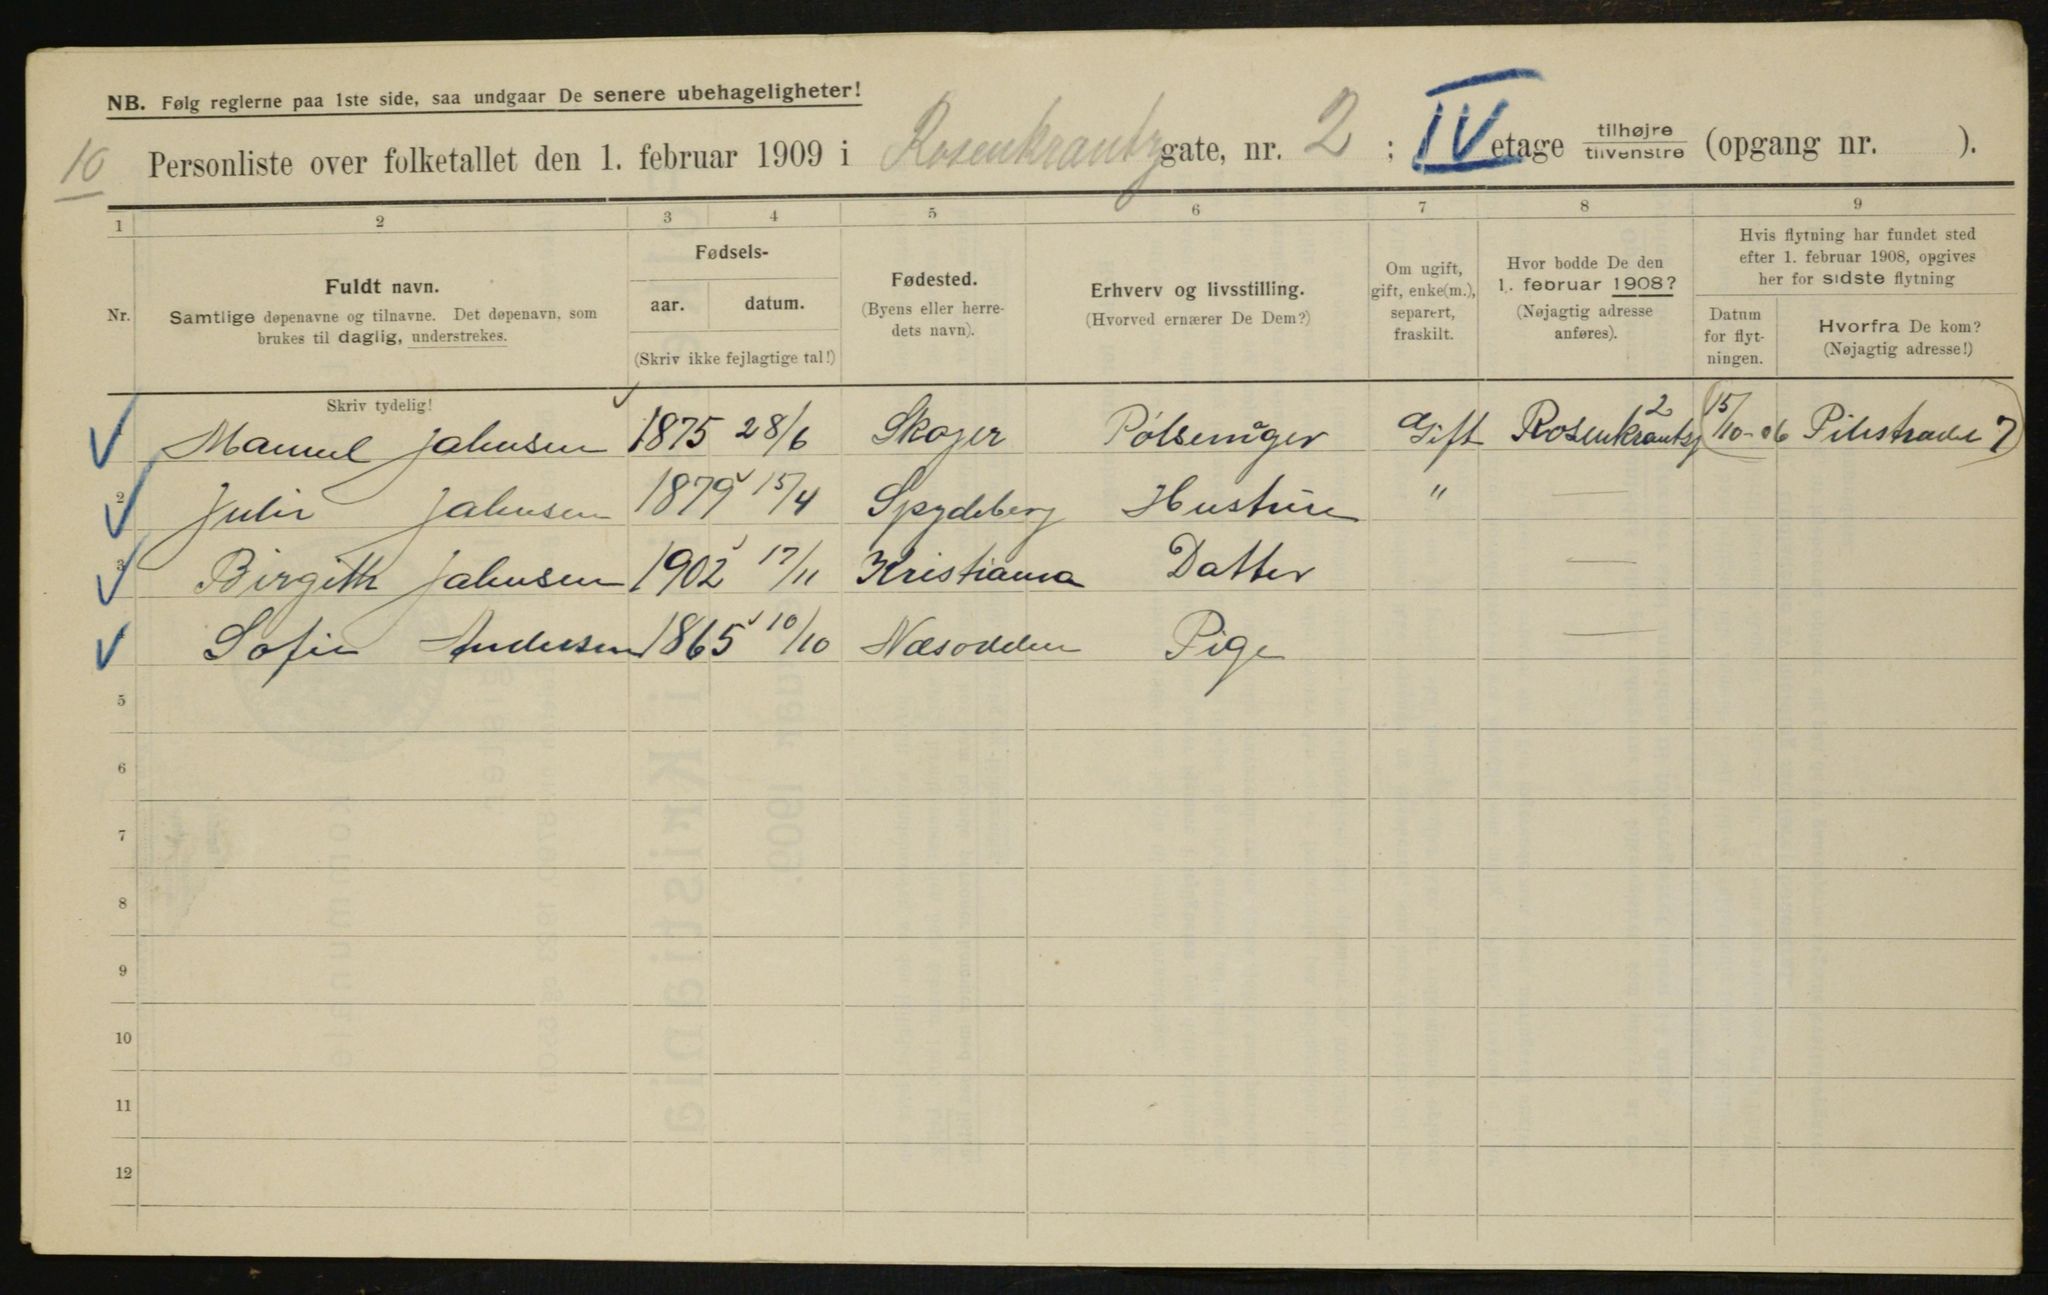 NB. Følg reglerne paa 1ste side, saa undgaar De senere ubehageligheter!
10 Personliste over folketallet den 1. februar 1909 i Rosenkrantz gate, nr. 2 ; IV etage tilhøjre tilvenstre (opgang nr. ).
1 2 3 4 5 6 7 8 9
Nr.
Fuldt navn.
Samtlige døpenavne og tilnavne. Det døpenavn, som
brukes til daglig, understrekes.
Skriv tydelig!
Fødsels-
aar. datum.
(Skriv ikke fejlagtige tal!)
Fødested.
(Byens eller herre-
dets navn).
Erhverv og livsstilling.
(Hvorved ernærer De Dem?)
Om ugift,
gift, enke(m.),
separert,
fraskilt.
Hvor bodde De den
1. februar 1908?
(Nøjagtig adresse
anføres).
Hvis flytning har fundet sted
efter 1. februar 1908, opgives
her for sidste flytning
Datum
for flyt-
ningen.
Hvorfra De kom?
(Nøjagtig adresse!)
Manuel Jahnsen 1875 28/6 Skoger Pølsemager Gift Rosenkrantzg 2 (15/10-06 Pilestrædet 7)
2 Julie Jahnsen 1879 15/4 Spydeberg Hustru " —
3 Birgith Jahnsen 1902 17/11 Kristiania Datter —
Sofie Andersen 1865 10/10 Næsodden Pige —
5
6
7
8
9
10
11
12